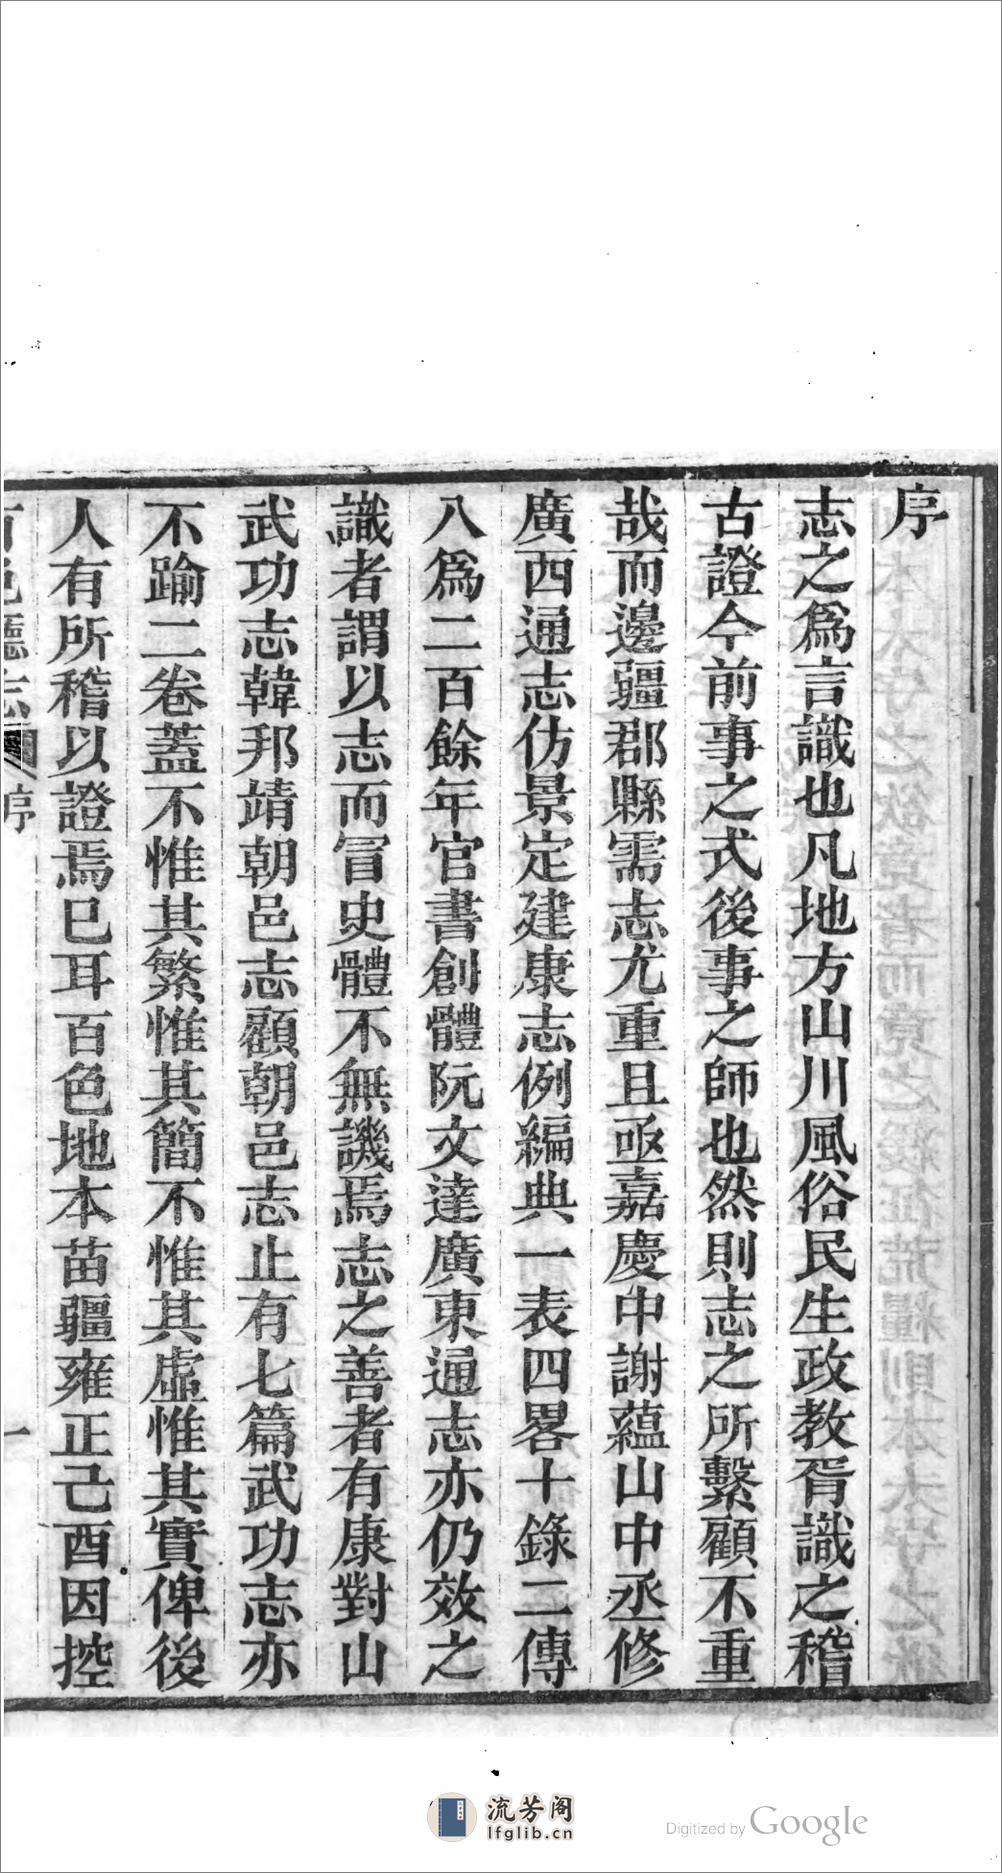 序
志之爲言識也凡地方山川風俗民生政教胥識之稽
古證今前事之式後事之師也然則志之所繫顧不重
哉而邊疆郡縣需志尤重且亟嘉慶中謝蘊山中丞修
廣西通志仿景定建康志例編典一表四畧十錄二傳
八爲二百餘年官書創體阮文達廣東通志亦仍效之
識者謂以志而冒史體不無譏焉志之善者有康對山
武功志韓邦靖朝邑志顧朝邑志止有七篇武功志亦
不踰二卷蓋不惟其繁惟其簡不惟其虛惟其實俾後
人有所稽以證焉已耳百色地本苗疆雍正己酉因控
百色廳志 序 一
流芳阁
lfglib.cn
Digitized by Google